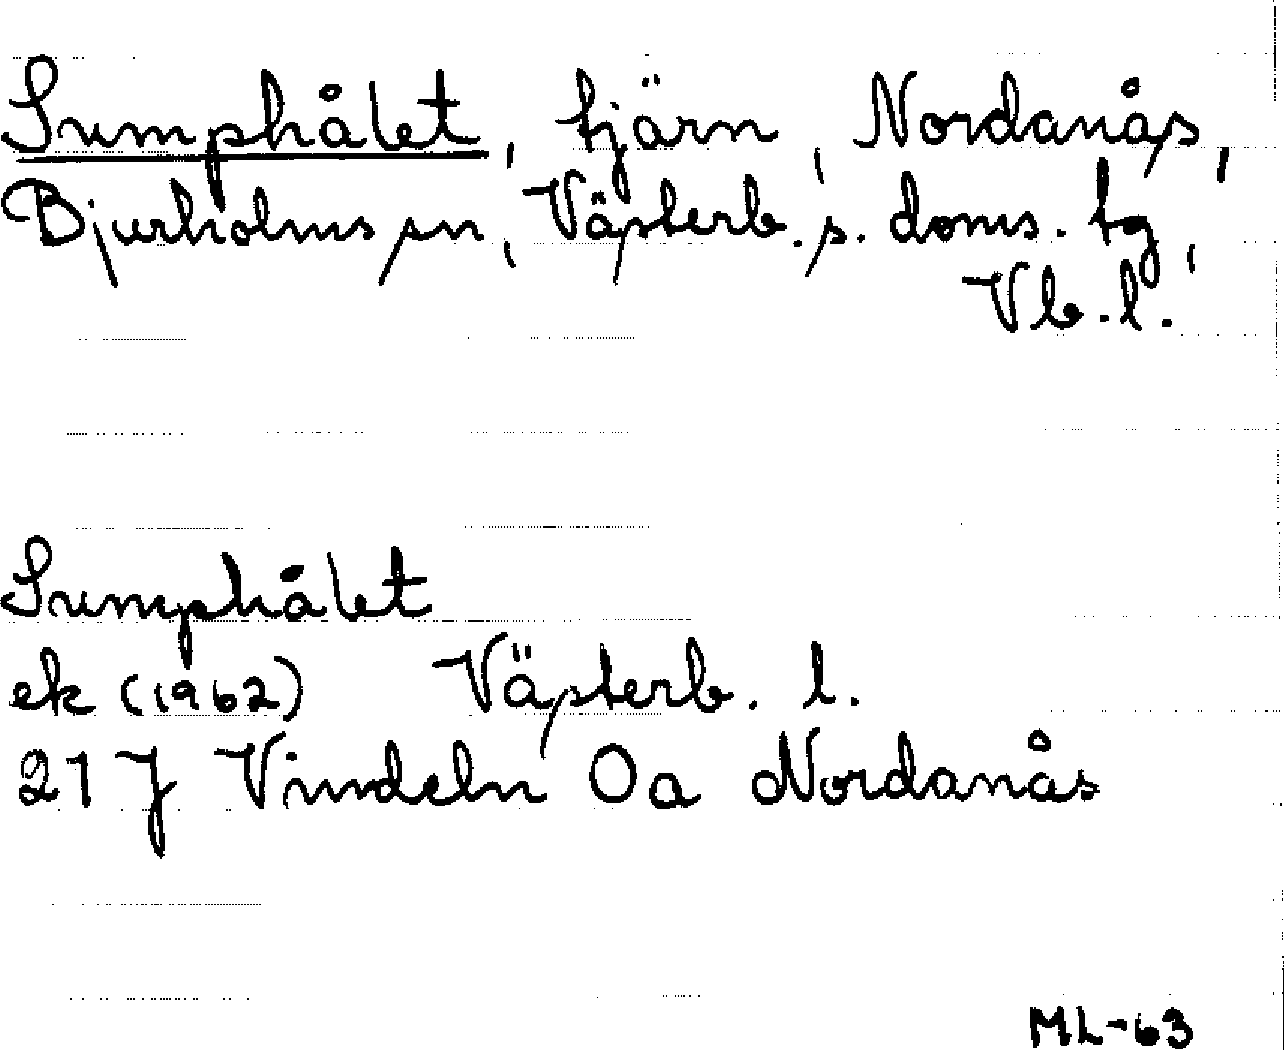 Sumphålet, tjärn, Nordanås,
Bjurholms sn, Västerb. s. doms. tg,
Vb. l.
Sumphålet
ek (1962) Västerb. l.
21 J Vindeln 0a Nordanås
ML-63